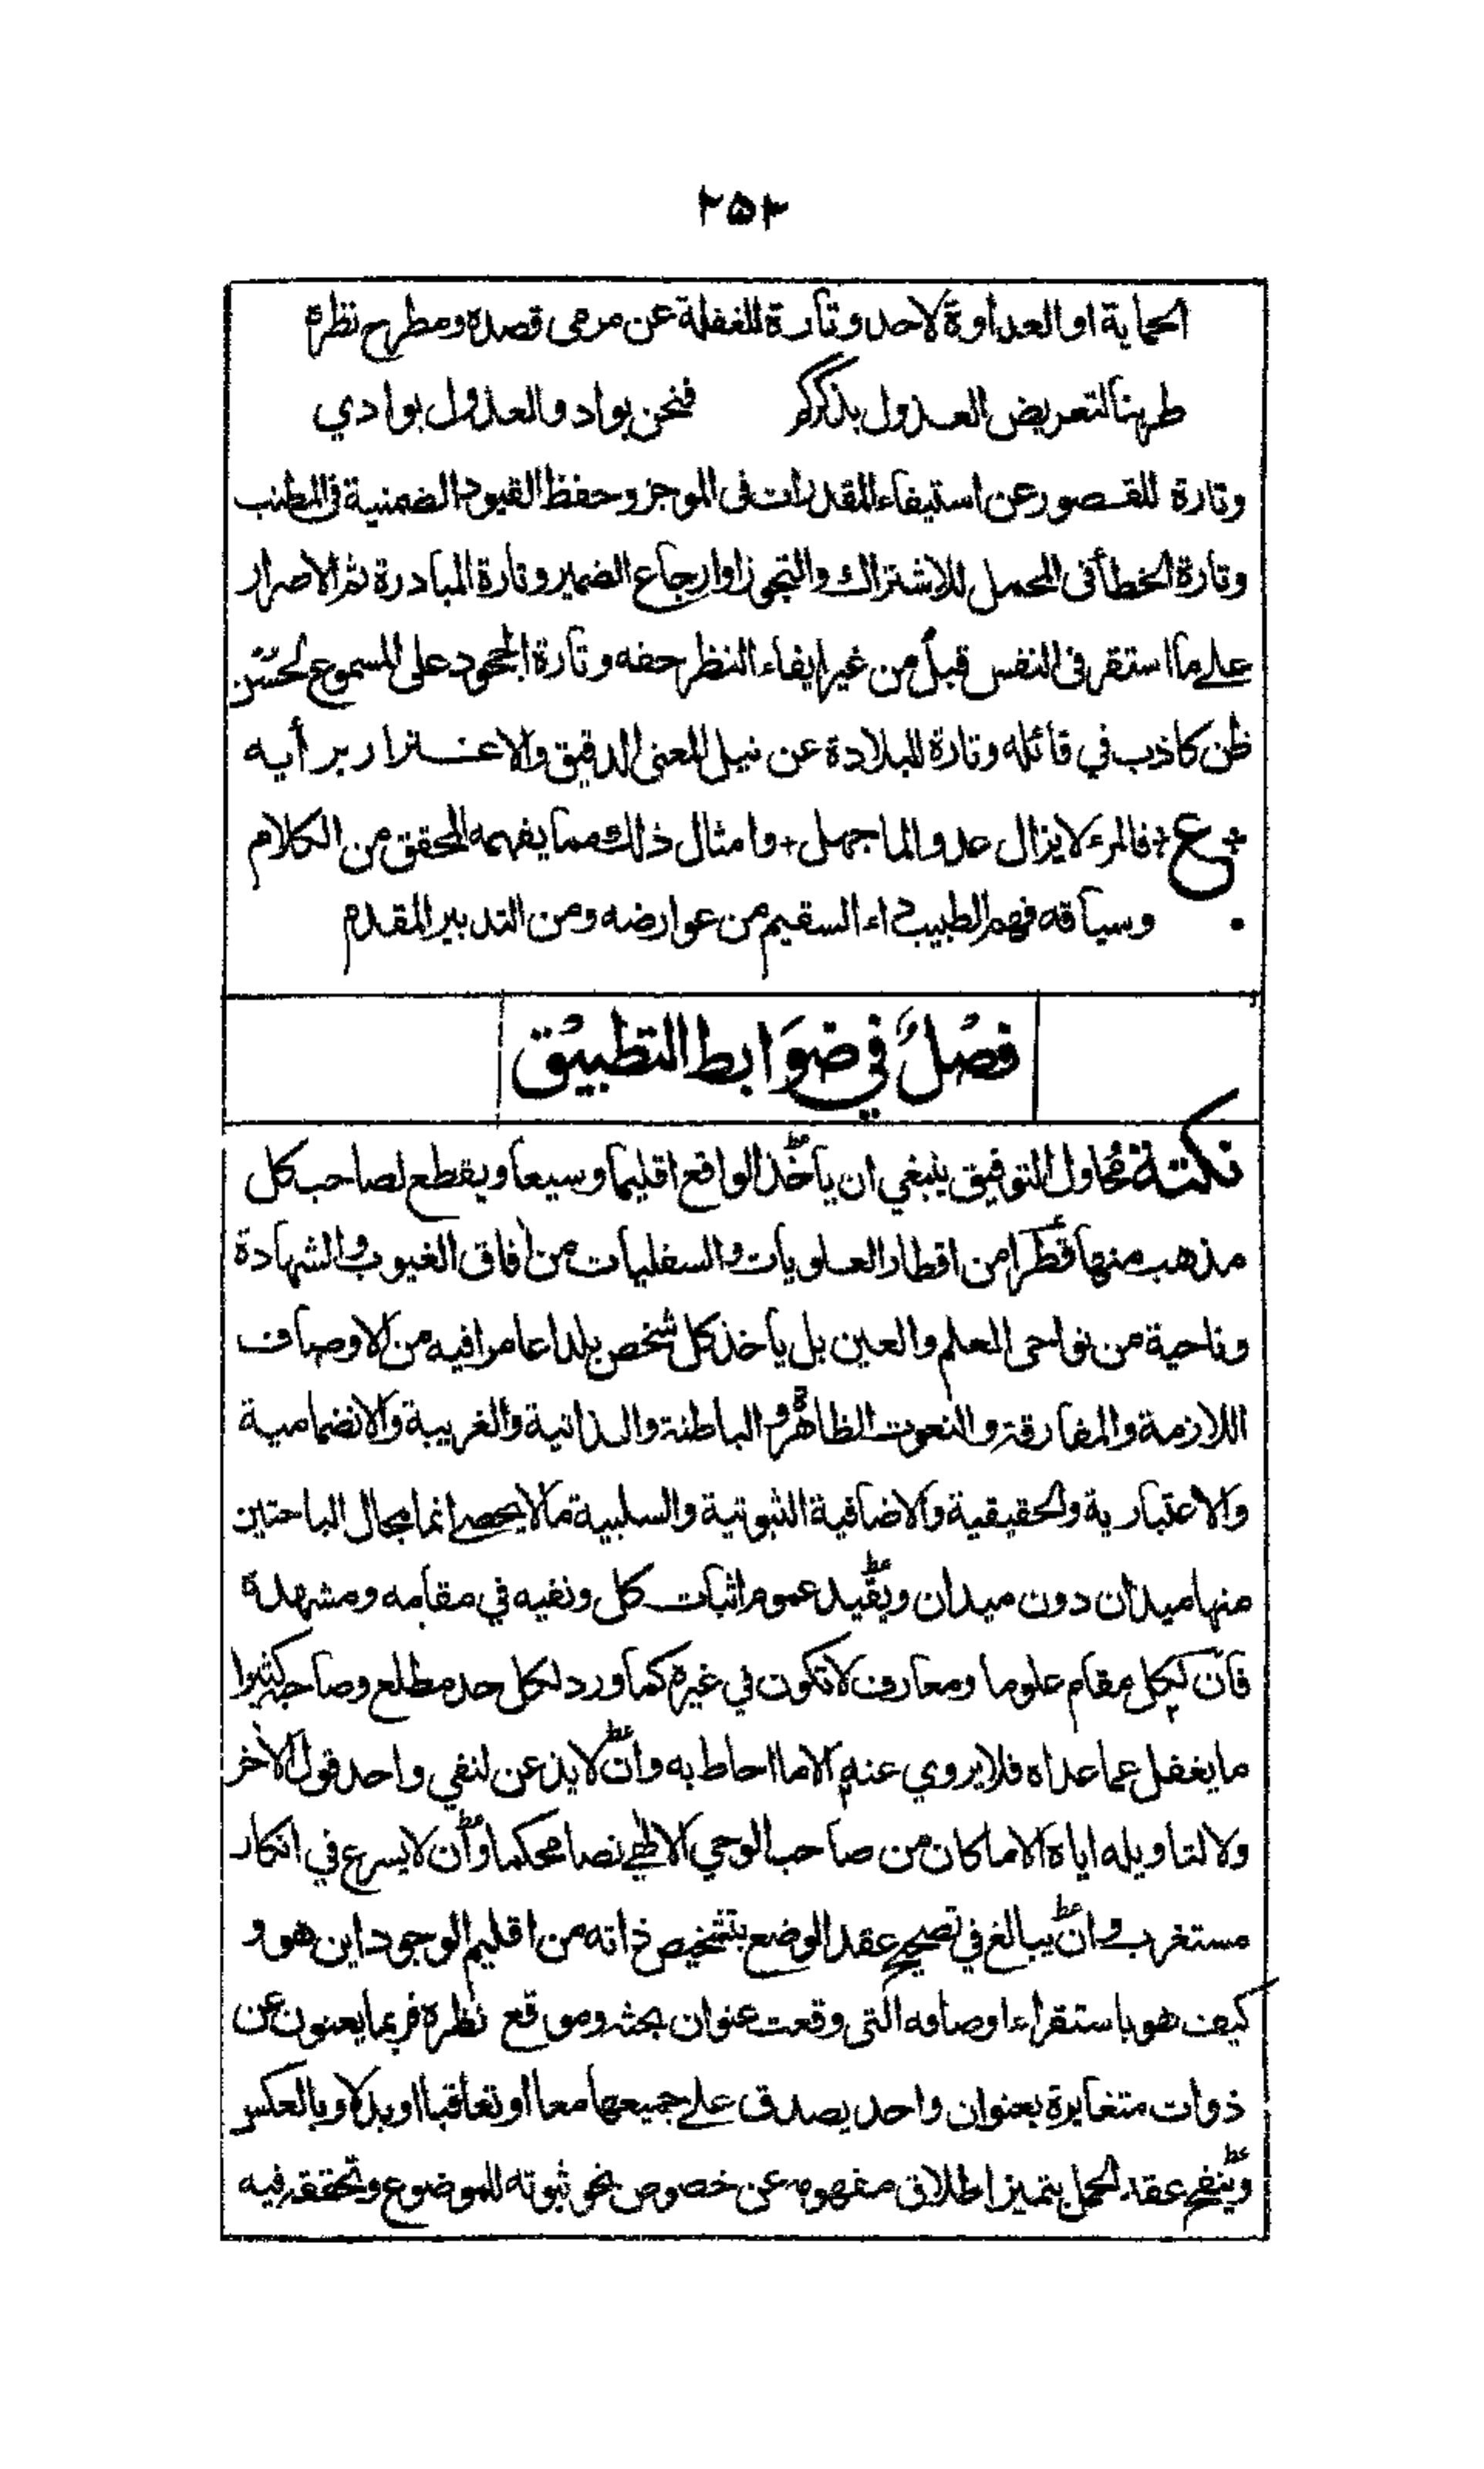 ۲۵۲
الحماية او العداوة لاحد وتارة للغفلة عن مرمى قصده ومطرح نظره
طربنا لتعريض العذول بذكركم فنحن بواد والعذول بوادي
وتارة للقصور عن استيفاء المقدرات فى الموجز وحفظ القيود الضمنية فى المطنب
وتارة الخطأ فى المحمل للاشتراك والتجوز او ارجاع الضمير وتارة المبادرة ثم الاصرار
على ما استقر فى النفس قبل من غير ايفاء النظر حقه وتارة الجحود على المسموع لحسن
ظن كاذب في قائله وتارة للبلادة عن نيل المعنى الدقيق والاغترار برأيه
ع + فالمرء لا يزال عدوا لما جهل + وامثال ذلك مما يفهمه المحقق من الكلام
وسياقه فهم الطبيب داء السقيم من عوارضه ومن التدبير المقدم
فصل في ضوابط التطبيق
نكتة محاول التوفيق ينبغي ان ياخذ الواقع اقليما وسيعا ويقطع لصاحب كل
مذهب منها قطرا من اقطار العلويات والسفليات من افاق الغيوب والشهادة
وناحية من نواحى العلم والعين بل ياخذ كل شخص بلدا عامرا فيه من الاوصاف
اللازمة والمفارقة والنعوت الظاهرة والباطنة والذاتية والغريبة والانضمامية
والاعتبارية والحقيقية والاضافية الثبوتية والسلبية مالا يحصى انما مجال الباحثين
منها ميدان دون ميدان ويقيد عموم اثبات كل ونفيه في مقامه ومشهده
فان لكل مقام علوما ومعارف لا تكون في غيره كما ورد لكل حد مطلع وصاحبه كثيرا
ما يغفل عما عداه فلا يروي عنه الا ما احاط به وان لا يذعن لنفي واحد قول الآخر
ولا لتاويله اياه الا ما كان من صاحب الوحي الالهي نصا محكما وان لا يسرع في انكار
مستغرب وان يبالغ في تصحيح عقد الوضع بتشخيص ذاته من اقليم الوجود اين هو و
كيف هو باستقراء اوصافه التى وقعت عنوان بحثه وموقع نظره فربما يعنون عن
ذوات متغايرة بعنوان واحد يصدق على جميعها معا او تعاقبا او بدلا وبالعكس
وينقح عقد الحمل بتميز اطلاق مفهومه عن خصوص نحو ثبوته للموضوع وتحققه فيه